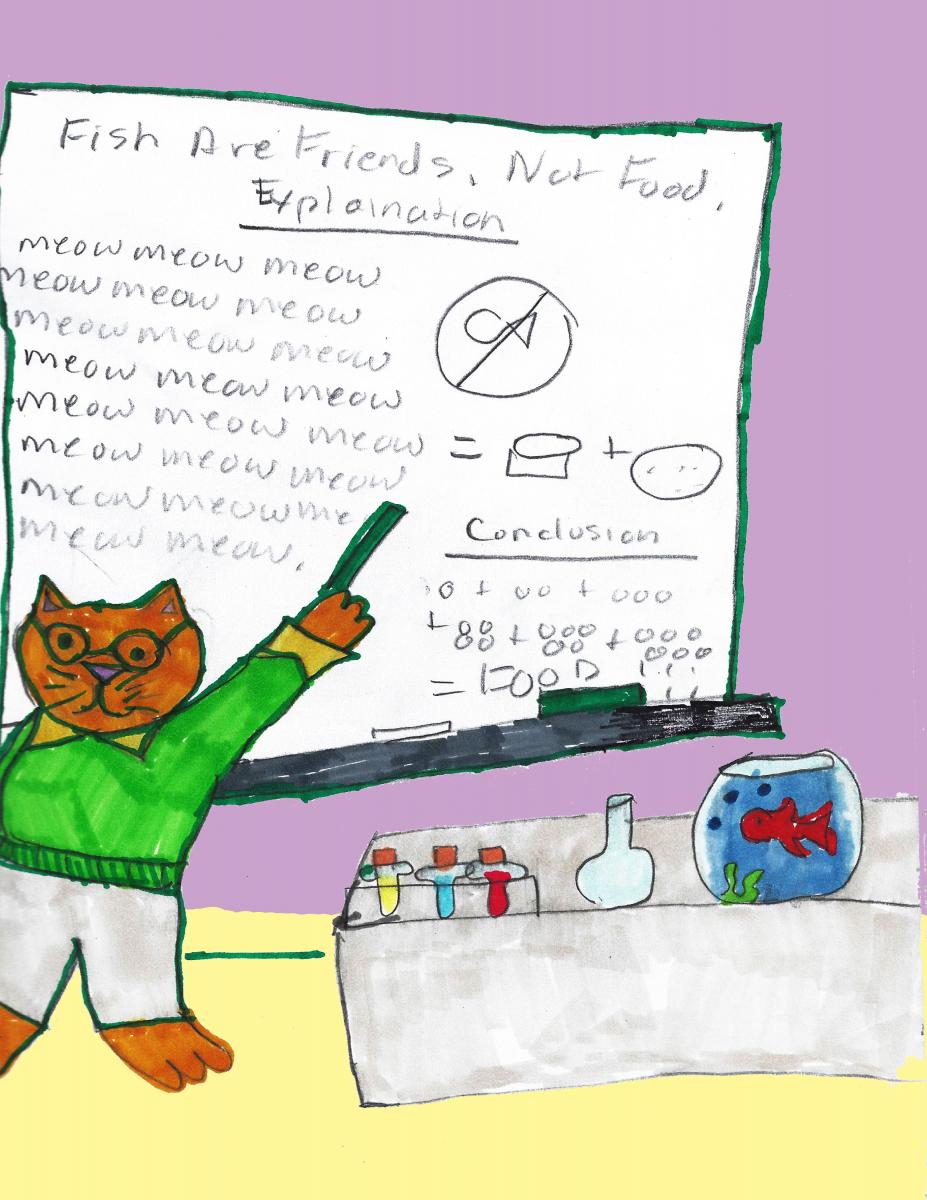 Fish Are Friends, Not Food.
Explaination
meow meow meow
meow meow meow
meow meow meow
meow meow meow
meow meow meow
meow meow meow
meow meow me
meow meow.
= +
Conclusion
o + oo + ooo
+ oooo + ooooo + oooooo
= FOOD !!!